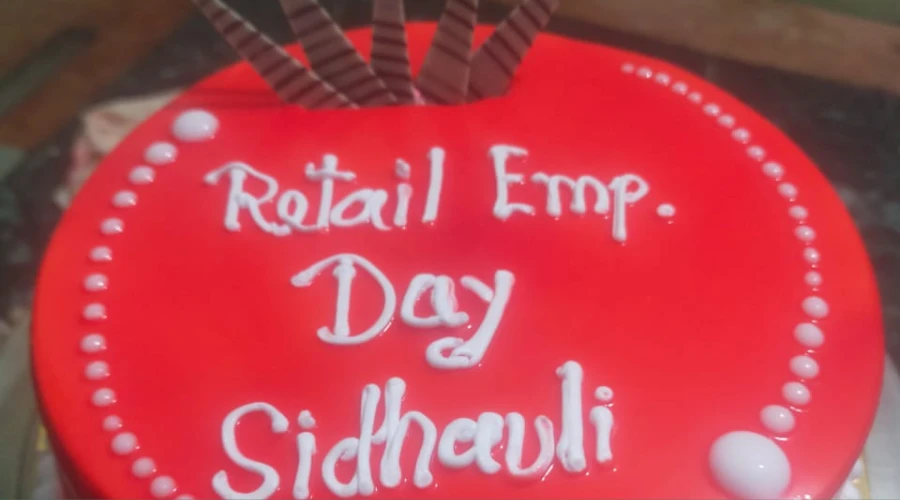 Retail Emp.
Day
Sidhauli